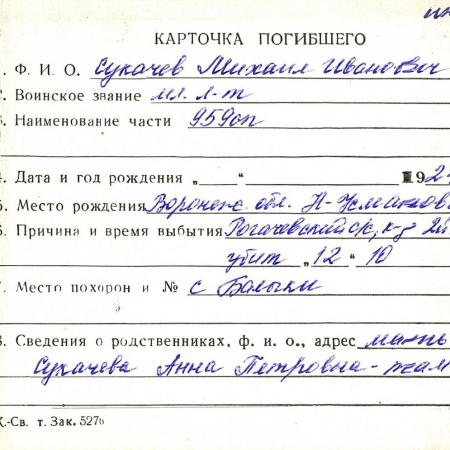 КАРТОЧКА ПОГИБШЕГО
. Ф. И. О. Сукачев Михаил Иванович
. Воинское звание мл. л-т
. Наименование части 959 оп
4. Дата и год рождения „ “ 192
5. Место рождения Воронеж. обл. Н-Усманов
6. Причина и время выбытия Рогачевский с/с, к-з
убит „12“ 10
7. Место похорон и № с Балыки
8. Сведения о родственниках, ф. и. о., адрес мать
Сукачева Анна Петровна - там
К.-Св. т. Зак. 527б